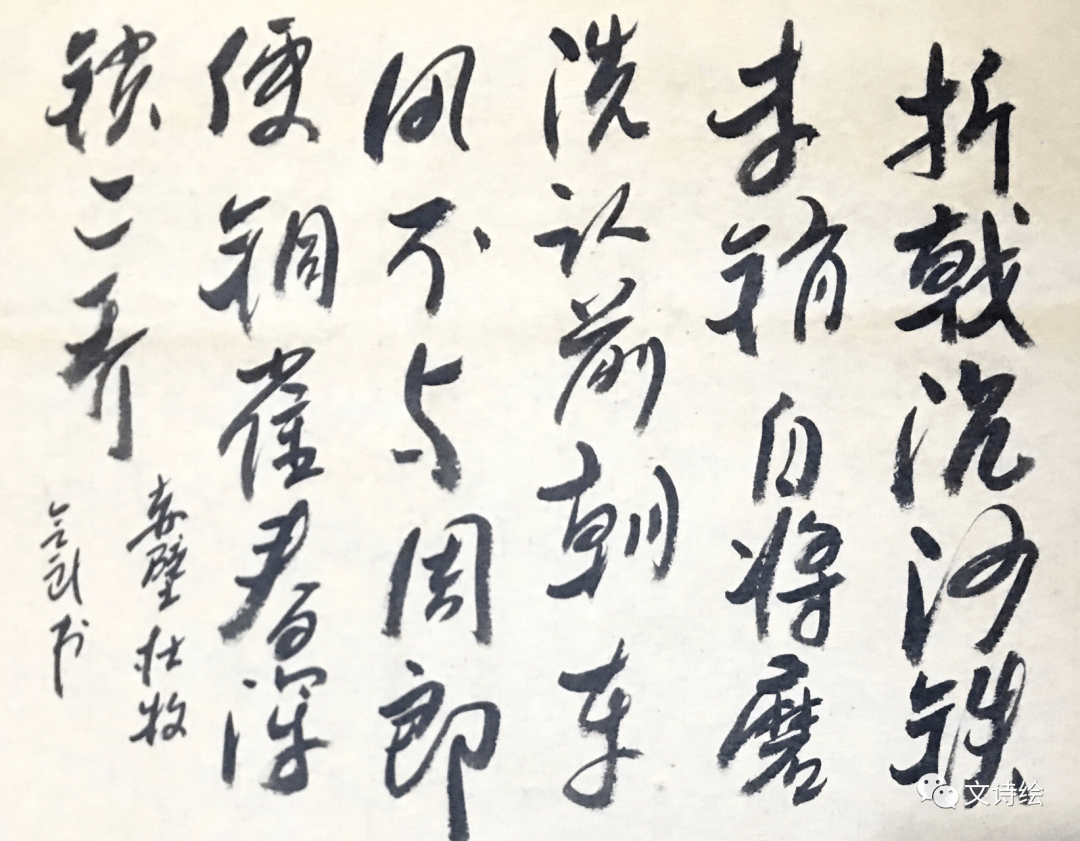 折戟沉沙铁
未销自将磨
洗认前朝东
风不与周郎
便铜雀春深
锁二乔
赤壁杜牧
书
文诗绘